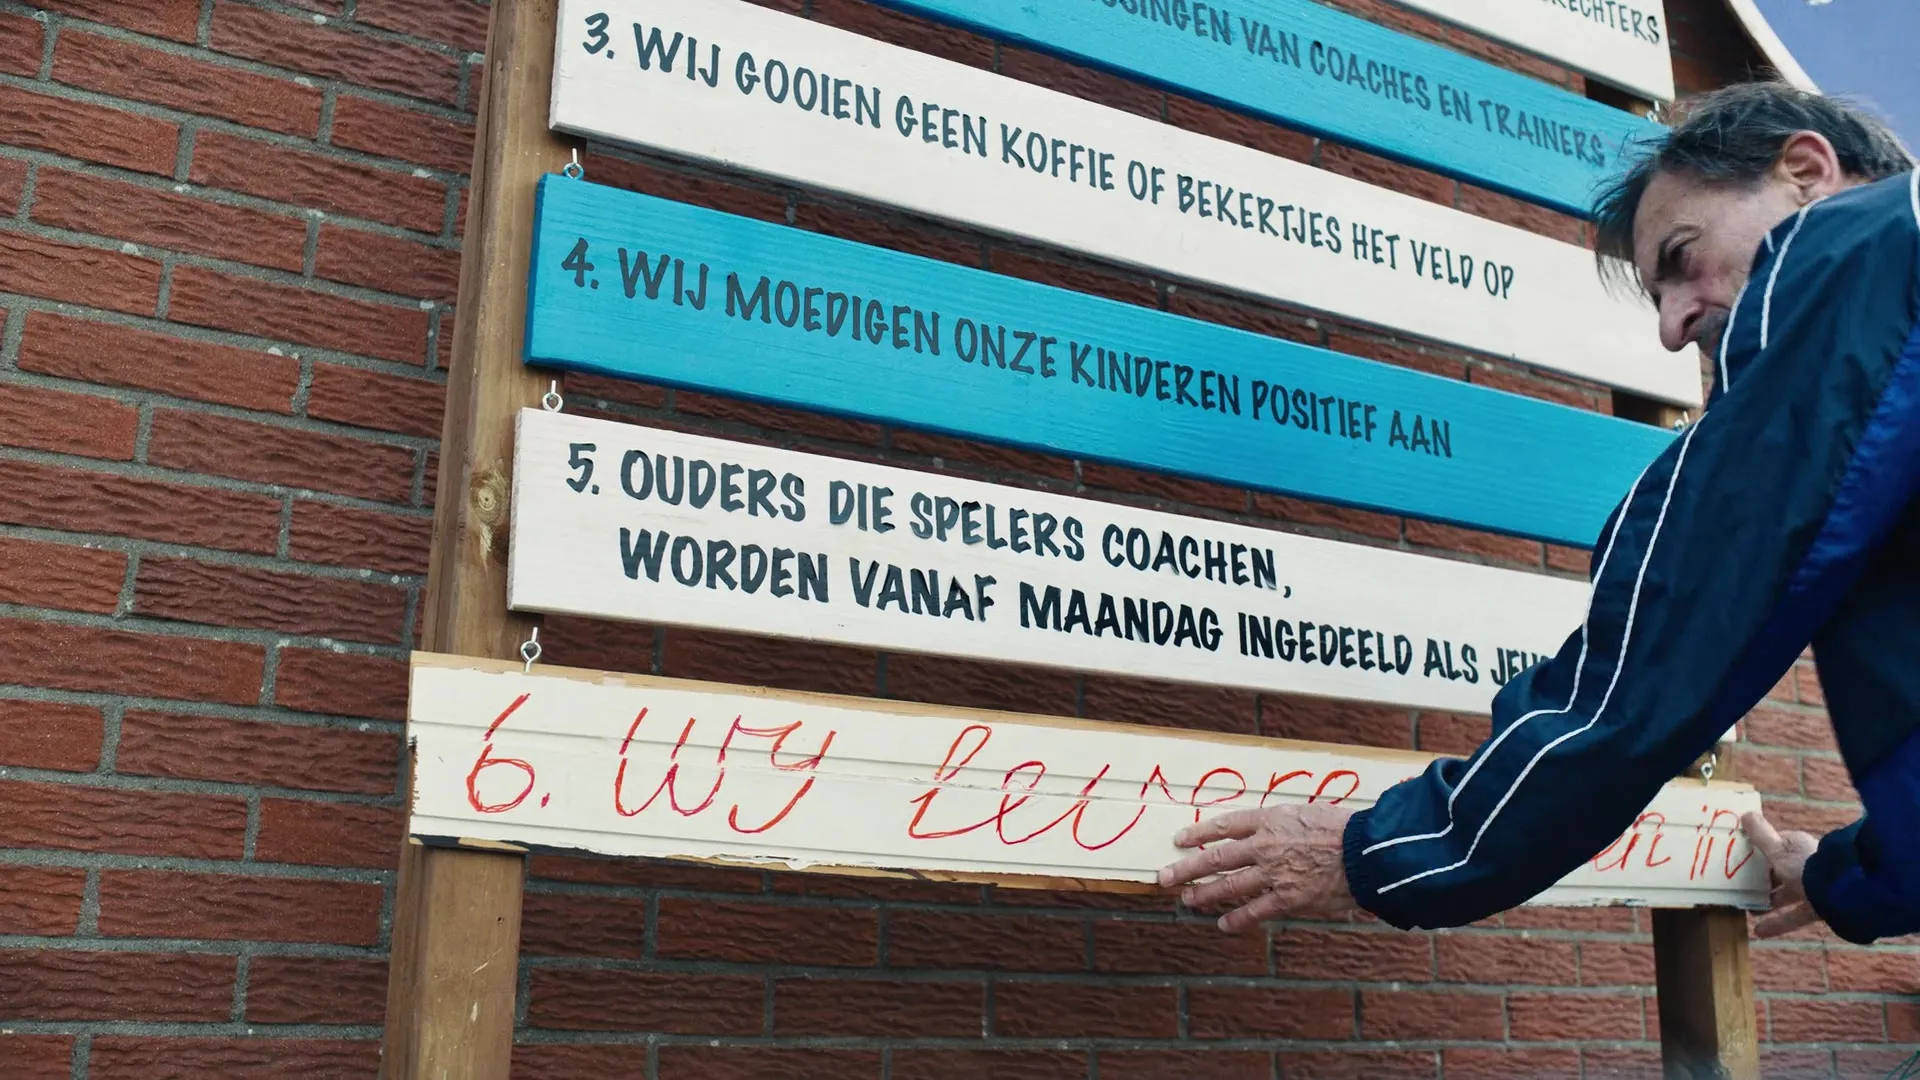 VAN COACHES EN TRAINERS
3. WIJ GOOIEN GEEN KOFFIE OF BEKERTJES HET VELD OP
4. WIJ MOEDIGEN ONZE KINDEREN POSITIEF AAN
5. OUDERS DIE SPELERS COACHEN,
WORDEN VANAF MAANDAG INGEDEELD ALS
6. Wy
in